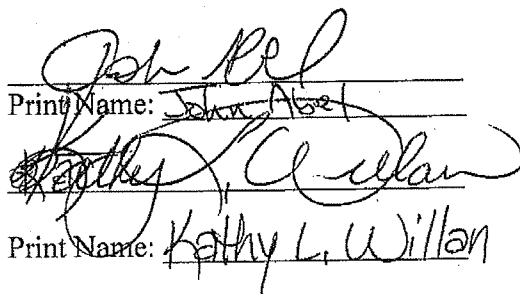 John Abel
Print Name: John Abel
Kathy L. Willan
Print Name: Kathy L. Willan